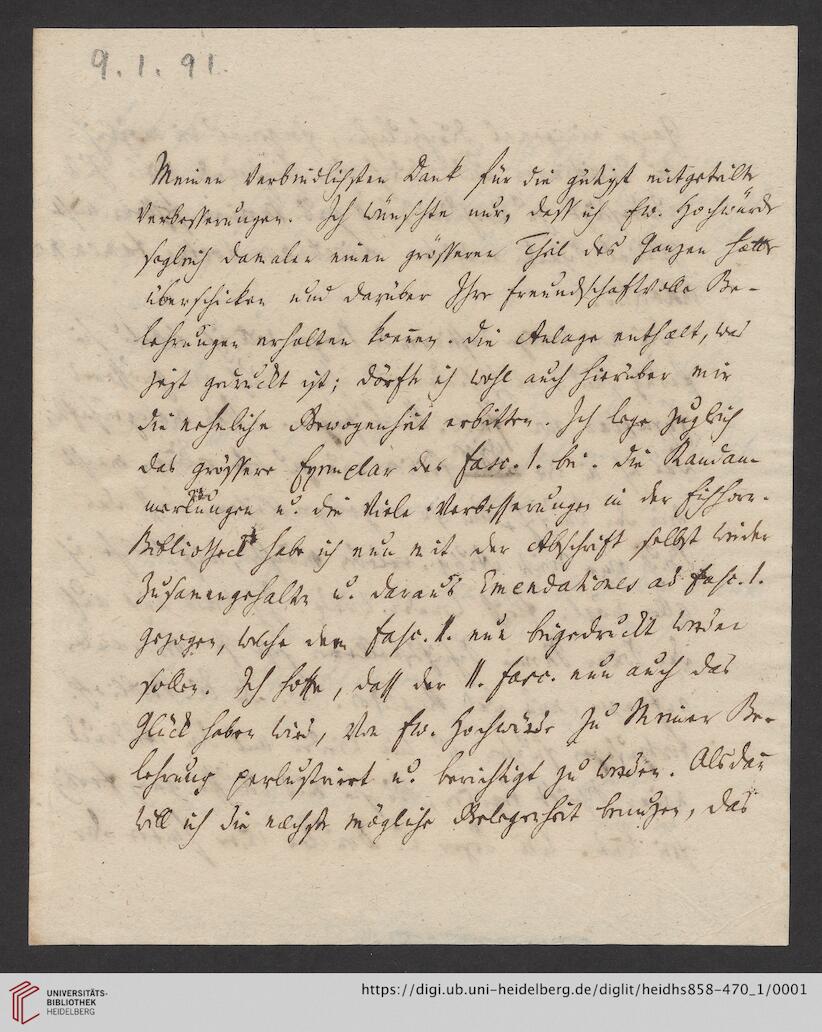 9. 1. 91.
Meinen verbindlichsten Dank für die gütigst mitgeteilte
Verbesserungen. Ich wünschte nur, dass ich Ew. Hochwürde
sogleich damalen einen grösseren Theil des Ganzen hätte
überschicken und darüber Ihre freundschaftvolle Be-
lehrungen erhalten koennen. Die Anlage enthält, was
jezt gedruckt ist; dörfte ich wohl auch hierüber mir
die nehmliche Gewogenheit erbitten. Ich lege zugleich
das grössere Exemplar des fasc. 1. bei. Die Randan-
merkungen u. die viele Verbesserungen in der Eichhorn.
Bibliotheck habe ich nun mit der Abschrift selbst wieder
zusamengehalten u. daraus Emendationes ad fasc. 1.
gezogen, welche dem fasc. II. nun beigedruckt werden
sollen. Ich hoffe, dass der II. fasc. nun auch das
Glück haben wird, von Ew. Hochwürde zu Meiner Be-
lehrung perlustriert u. berichtigt zu werden. Alsdan
will ich die nechste mögliche Gelegenheit benuzen, das
UNIVERSITÄTS-
BIBLIOTHEK
HEIDELBERG
https://digi.ub.uni-heidelberg.de/diglit/heidhs858-470_1/0001